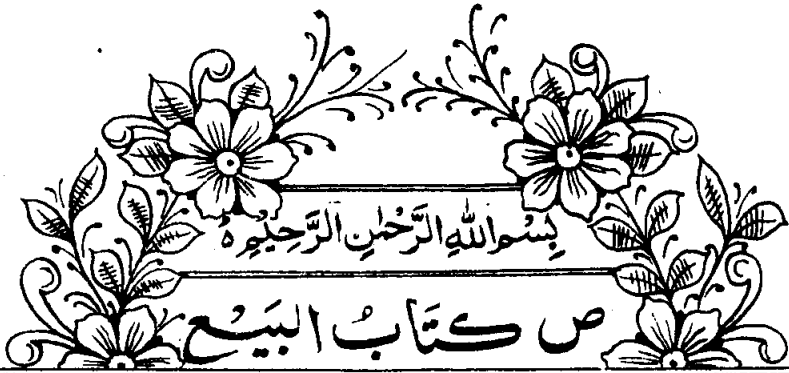 بِسْمِ اللهِ الرَّحْمٰنِ الرَّحِيْمِ ط
ص كتَابُ البَيْع